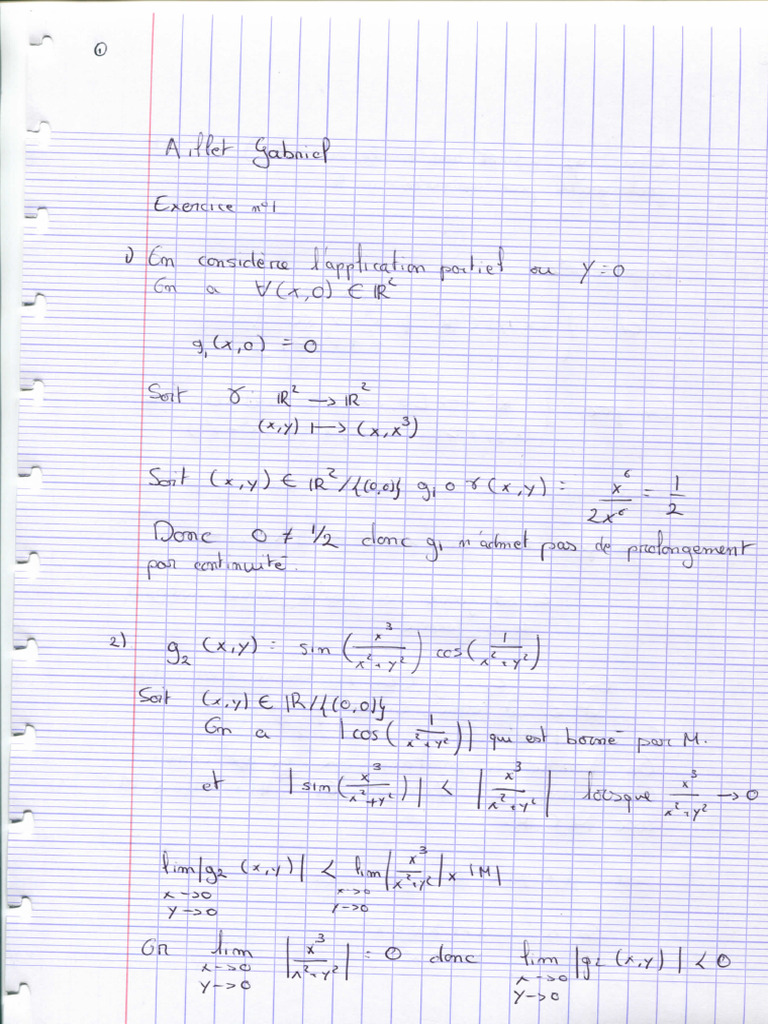 ①
Aillet Gabriel
Exercice n°1
1) On considère l'application partiel ou y=0
On a ∀(x,0) ∈ ℝ²
g₁(x,0) = 0
Soit γ ℝ² → ℝ²
(x,y) ↦ (x,x³)
Soit (x,y) ∈ ℝ²/{(0,0)} g₁ o γ(x,y) = x⁶/2x⁶ = 1/2
Donc 0 ≠ 1/2 donc g₁ n'admet pas de prolongement
par continuité.
2) g₂ (x,y) = sin (x³/(x²+y²)) cos(1/(x²+y²))
Soit (x,y) ∈ ℝ/{(0,0)}
On a |cos(1/(x²+y²))| qui est borné par M.
et |sin(x³/(x²+y²))| < |x³/(x²+y²)| lorsque x³/(x²+y²) → 0
lim|g₂ (x,y)| < lim|x³/(x²+y²)| x |M|
x→0 x→0
y→0 y→0
Or lim |x³/(x²+y²)| = 0 donc lim |g₂ (x,y)| < 0
x→0 x→0
y→0 y→0